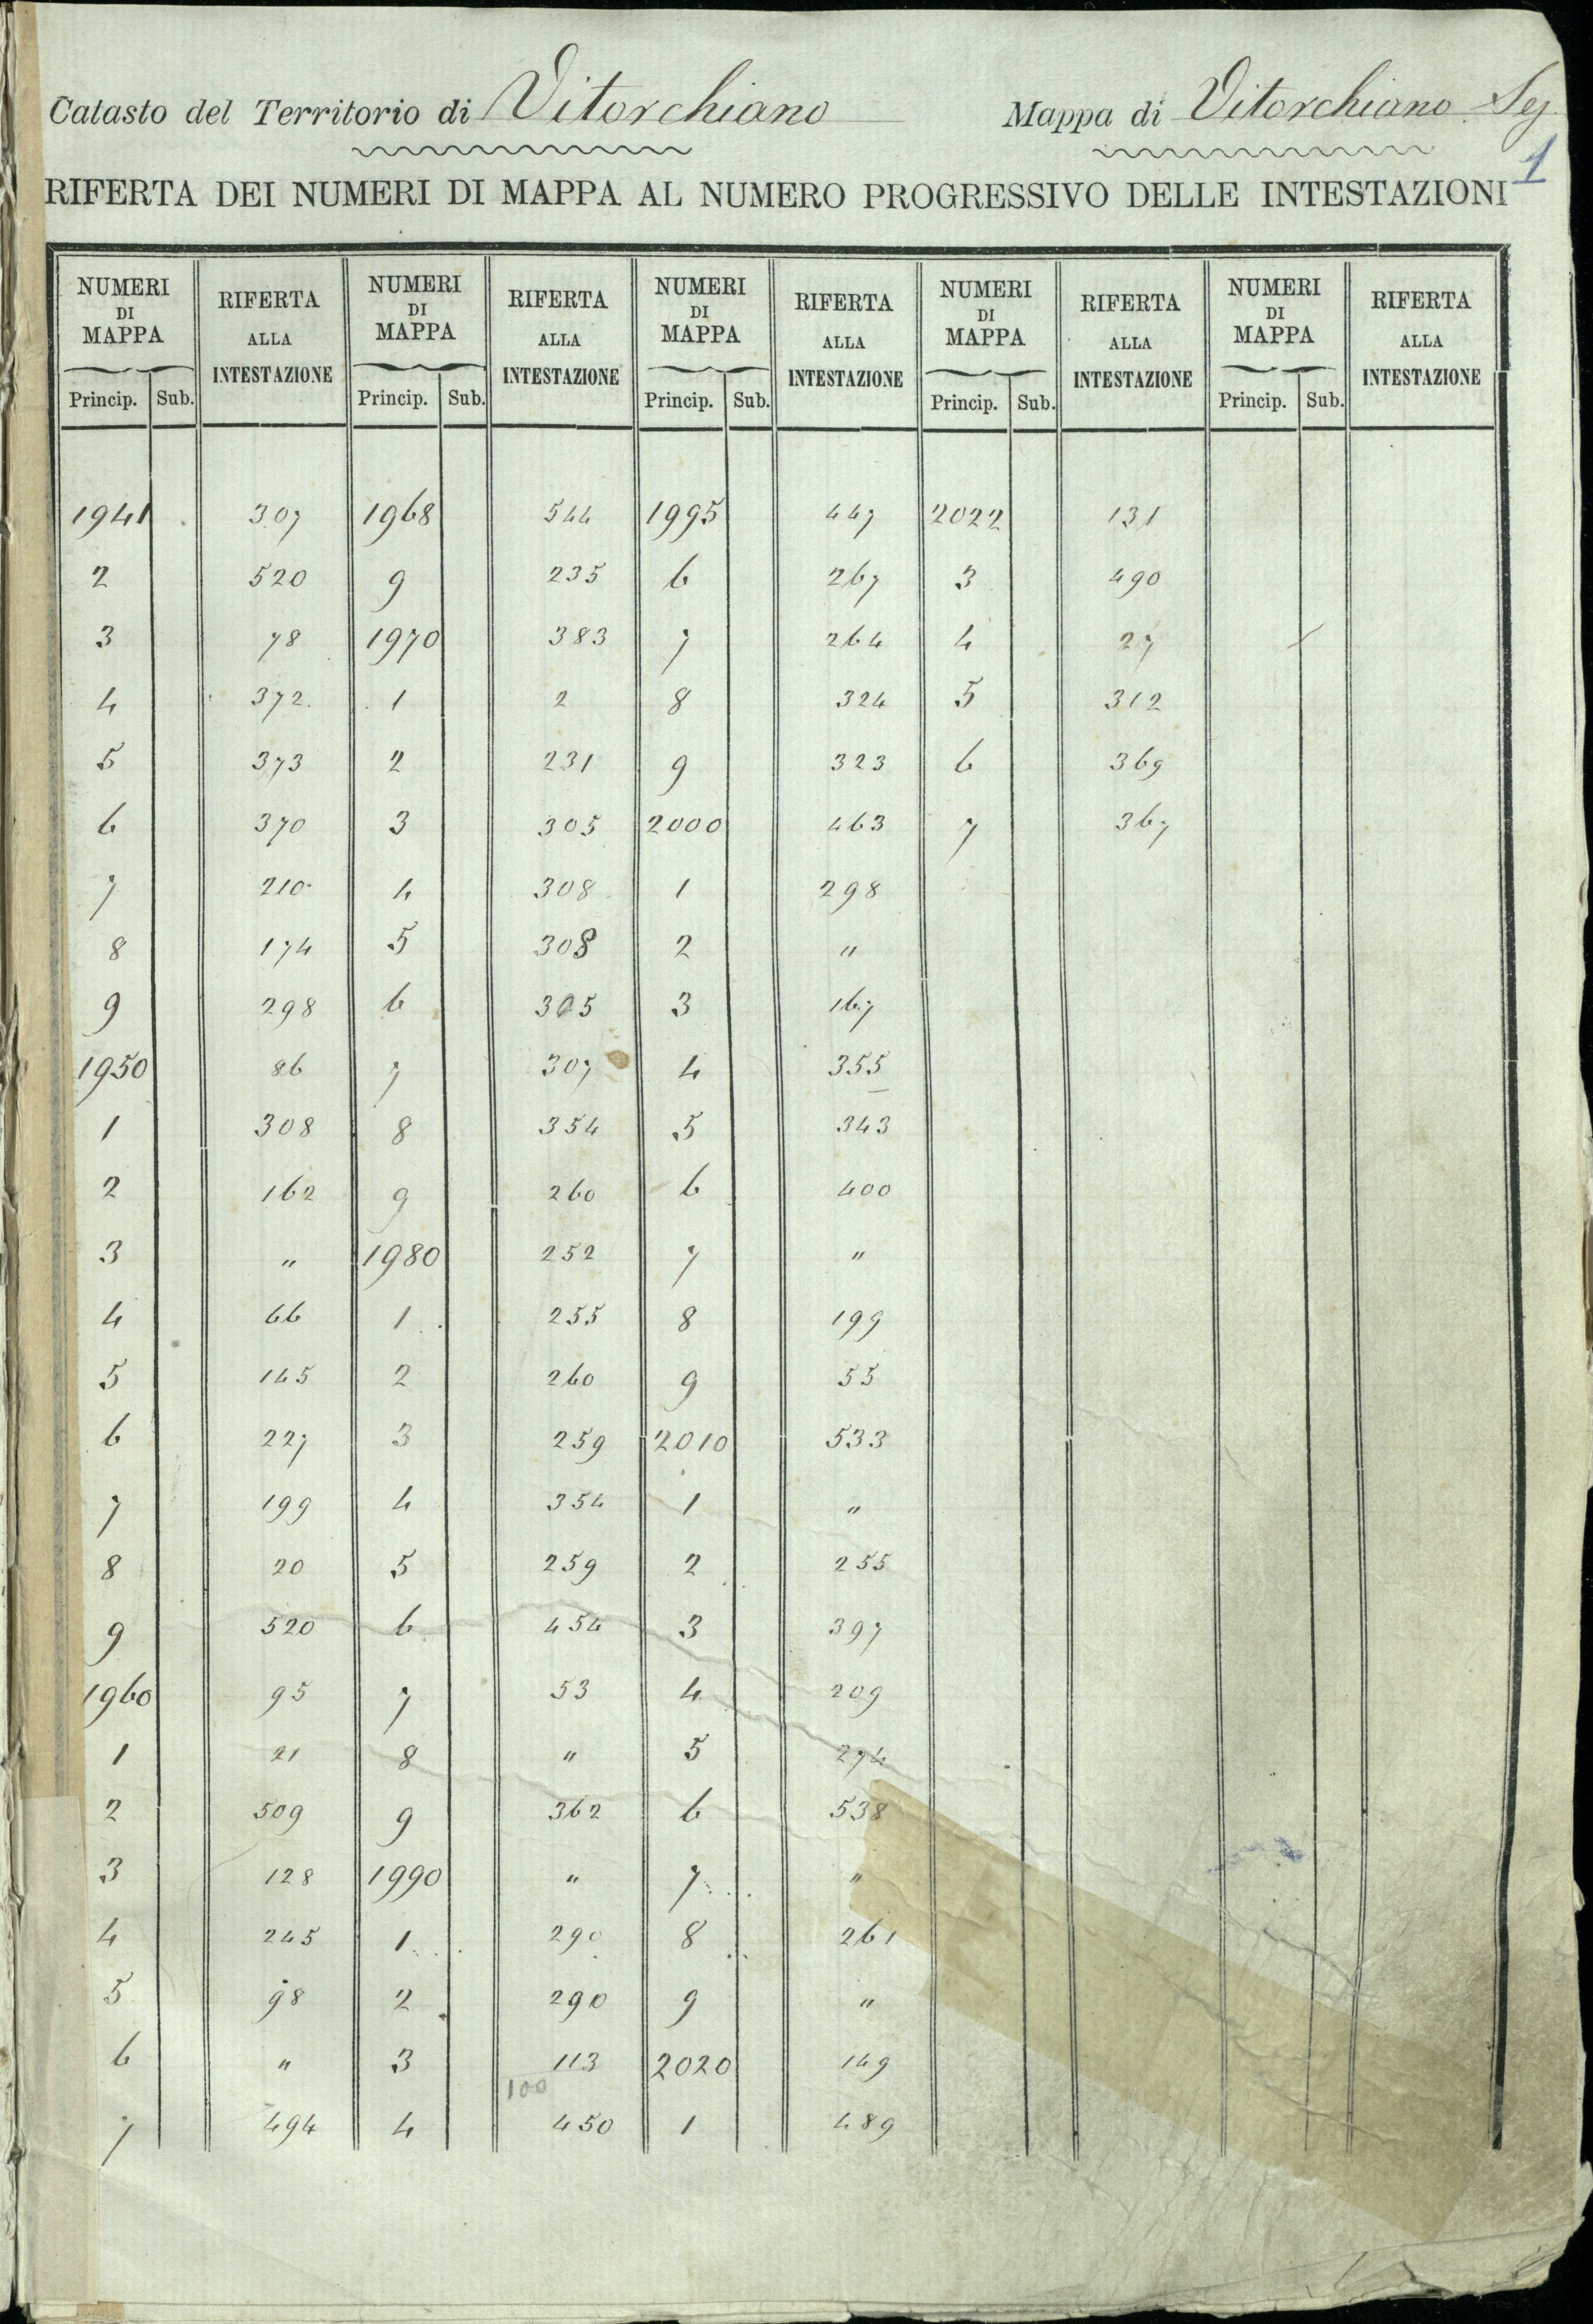 Catasto del Territorio di Vitorchiano Mappa di Vitorchiano Seg
1
RIFERTA DEI NUMERI DI MAPPA AL NUMERO PROGRESSIVO DELLE INTESTAZIONI
NUMERI RIFERTA NUMERI RIFERTA NUMERI RIFERTA NUMERI RIFERTA NUMERI RIFERTA
DI ALLA DI ALLA DI ALLA DI ALLA DI ALLA
MAPPA INTESTAZIONE MAPPA INTESTAZIONE MAPPA INTESTAZIONE MAPPA INTESTAZIONE MAPPA INTESTAZIONE
Princip. Sub. Princip. Sub. Princip. Sub. Princip. Sub. Princip. Sub.
1941 307 1968 544 1995 447 2022 131
2 520 9 235 6 267 3 490
3 78 1970 383 7 264 4 27
4 372 1 2 8 324 5 312
5 373 2 231 9 323 6 369
6 370 3 305 2000 463 7 367
7 210 4 308 1 298
8 174 5 308 2 "
9 298 6 305 3 167
1950 86 7 307 4 355
1 308 8 354 5 343
2 162 9 260 6 400
3 " 1980 252 7 "
4 66 1 255 8 199
5 145 2 260 9 55
6 227 3 259 2010 533
7 199 4 354 1 "
8 20 5 259 2 255
9 520 6 454 3 397
1960 95 7 53 4 209
1 21 8 " 5 274
2 509 9 362 6 538
3 128 1990 " 7 "
4 245 1 290 8 261
5 98 2 290 9 "
6 " 3 113 2020 149
100
7 494 4 450 1 489